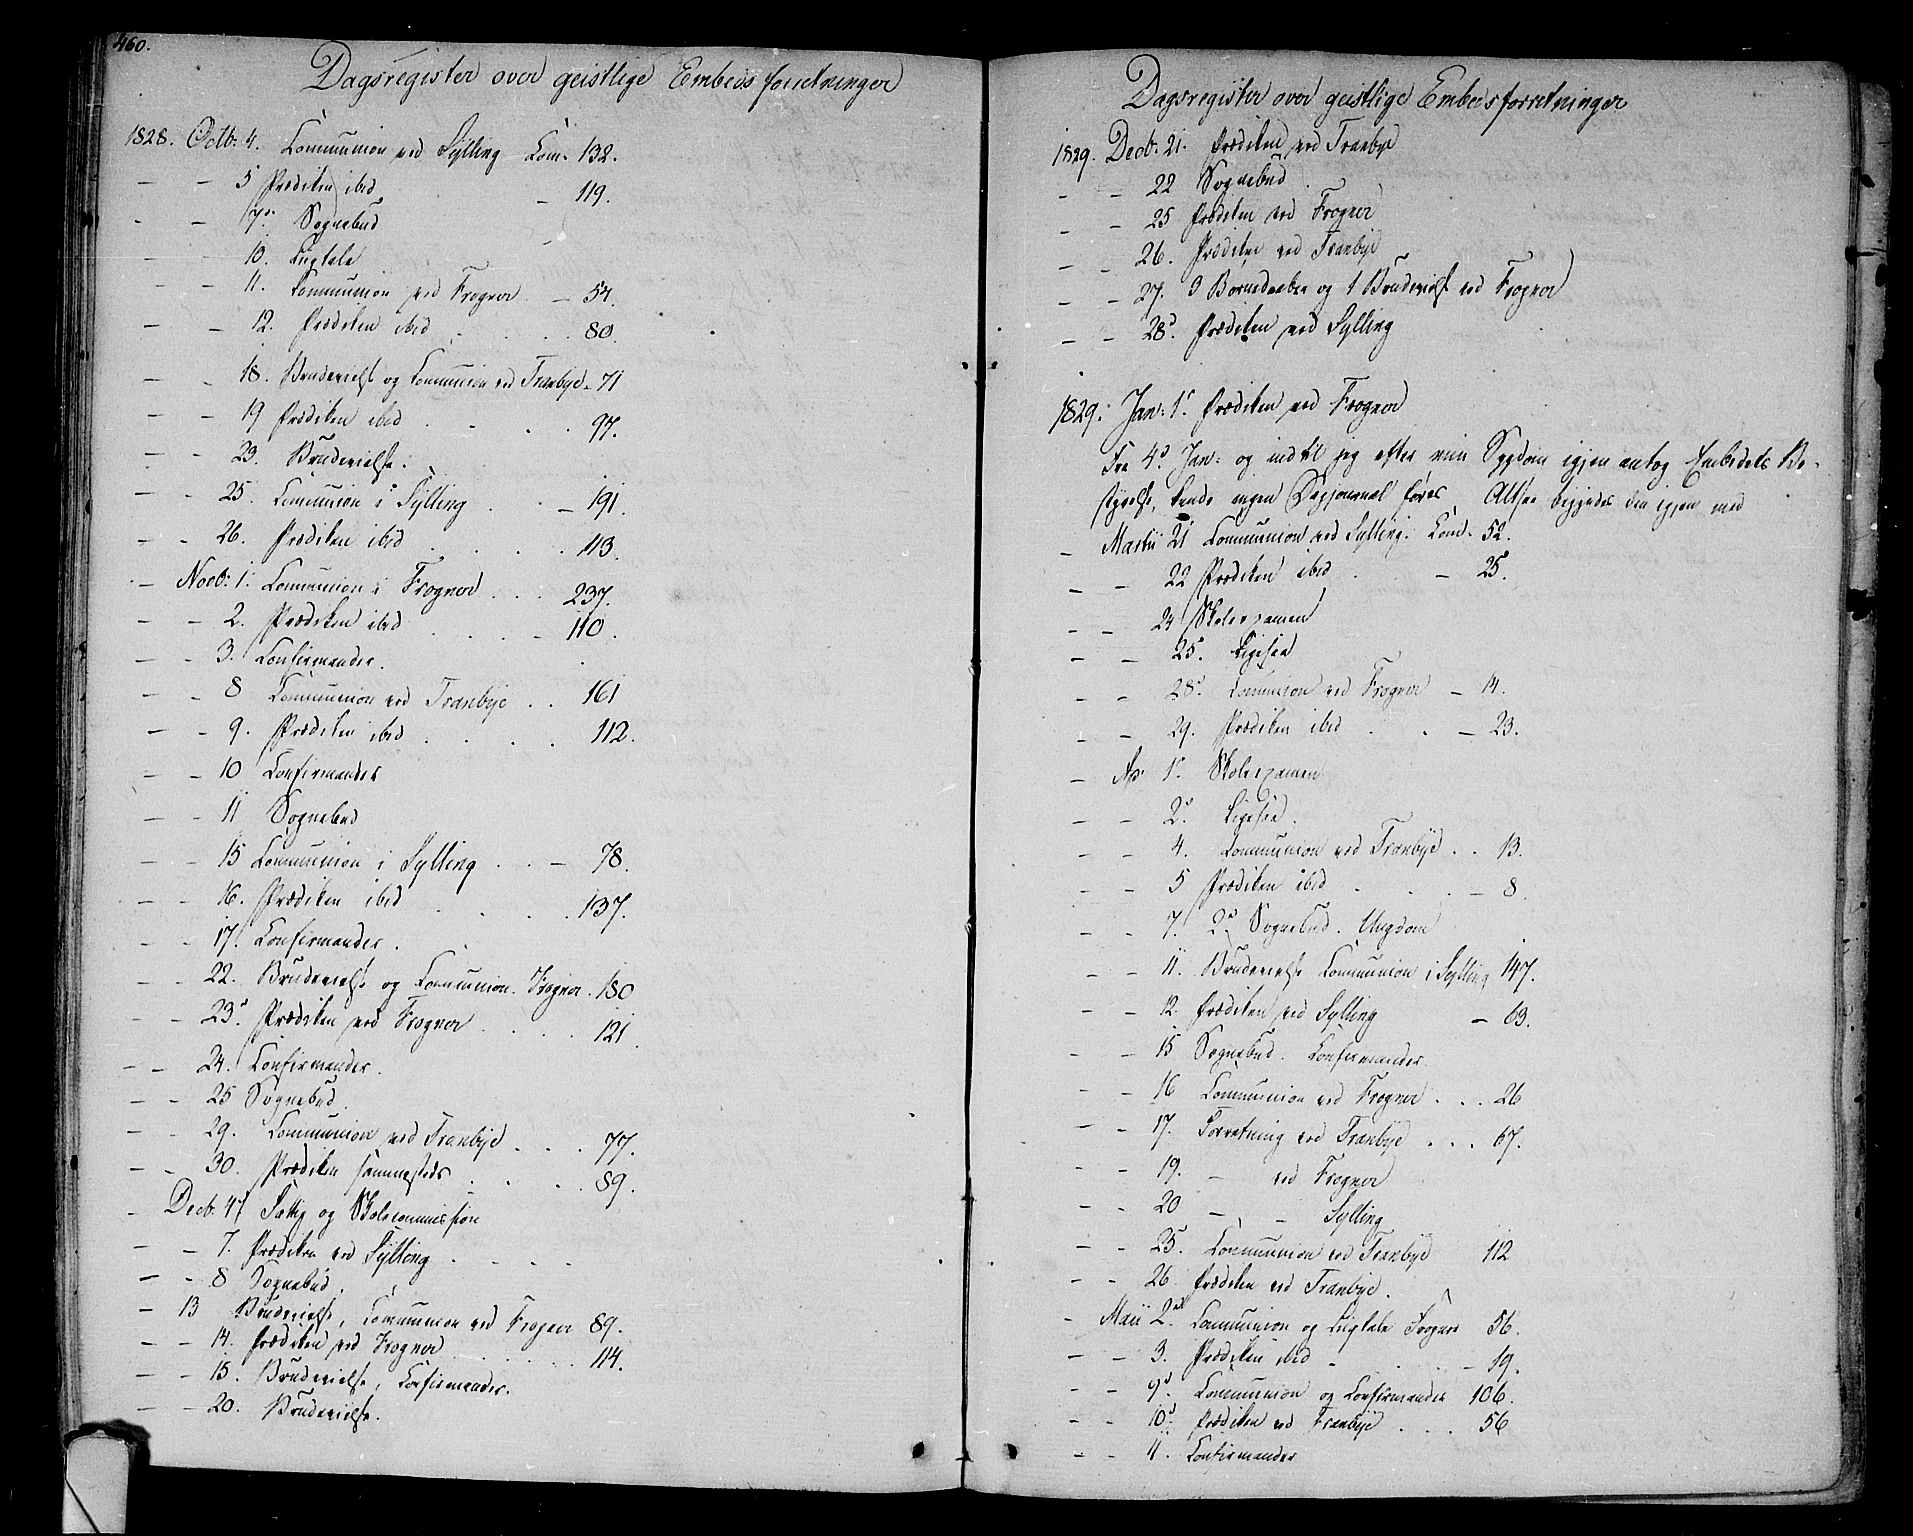 460.
Dagsregister over geistlige Embedsforretninger
1828. Octb: 4. Communion ved Sylling Com. 132.
— — 5 Prædiken ibid — 119.
— — 7de Sognebud
— — 10. Ligtale
— — 11. Communion ved Frogner — 54.
— — 12. Prædiken ibid . . . 80.
— — 18. Brudevielse og Communion ved Tranbye. 71
— — 19 Prædiken ibid . . . . 97.
— — 23. Brudevielse.
— — 25. Communion i Sylling . . — 191.
— — 26. Prædiken ibid . . . . 113.
— Novb: 1. Communion i Frogner . . . 237.
— — 2. Prædiken ibid . . . — 110.
— — 3. Confirmander.
— — 8 Communion ved Tranbye . . 161
— — 9. Prædiken ibid . . . . 112.
— — 10 Confirmander
— — 11 Sognebud
— — 15 Communion i Sylling . . — 78.
— — 16. Prædiken ibid . . . . 137.
— — 17. Confirmander.
— — 22. Brudevielse og Communion. Frogner. 180
— — 23d Prædiken ved Frogner . . . 121.
— — 24. Confirmander.
— — 25 Sognebud.
— — 29. Communion ved Tranbye . . . 77.
— — 30. Prædiken sammesteds . . . . 89.
— Decb: 4 og Skolecommission
— — 7. Prædiken ved Sylling . . . .
— — 8 Sognebud.
— — 13 Brudevielse, Communion ved Frogner 89.
— — 14. Prædiken ved Frogner . . . . . 114.
— — 15. Brudevielse, Confirmander.
— — 20. Brudevielse.
Dagsregister over geistlige Embedsforretninger
1829. Decb: 21. Prædiken ved Tranbye
— — 22 Sognebud
— — 25 Prædiken ved Frogner
— — 26. Prædiken ved Tranbye
— — 27. 3 Barnedaaber og 1 Brudevielse ved Frogner
— — 28d Prædiken ved Sylling
1829. Jan: 1. Prædiken ved Frogner
Fra 4d Jan: og indtil jeg efter min Sygdom igjen antog Embedets Be-
styrelse, kunde ingen Dagjournal føres Altsaa begyndes den igjen med
— Martii 21 Communion ved Sylling. Com. 52.
— — 22 Prædiken ibid . — 25.
— — 24 Skolexamen
— — 25. Ligesaa
— — 28d Communion ved Frogner — 14.
— — 29. Prædiken ibid . . — 23.
— Ap: 1. Skolexamen
— — 2d Ligesaa.
— — 4. Communion ved Tranbye . . 13.
— — 5 Prædiken ibid . . . — 8.
— — 7. 2d Sognebud. Ungdom
— — 11. Brudevielse Communion i Sylling 147.
— — 12. Prædiken ved Sylling — 63.
— — 15 Sognebud. Confirmander.
— — 16 Communion ved Frogner . . . 26
— — 17. Forretning ved Tranbye . . . 67.
— — 19. — ved Frogner
— — 20 — — Sylling
— — 25. Communion ved Tranbye 112
— — 26. Prædiken ved Tranbye.
— Maii 2d Communion og Ligtale Frogner 56.
— — 3. Prædiken ibid . . . — 19.
— — 9d Communion og Confirmander 106.
— — 10d Prædiken ved Tranbye . . . 56
— — 11. Confirmander